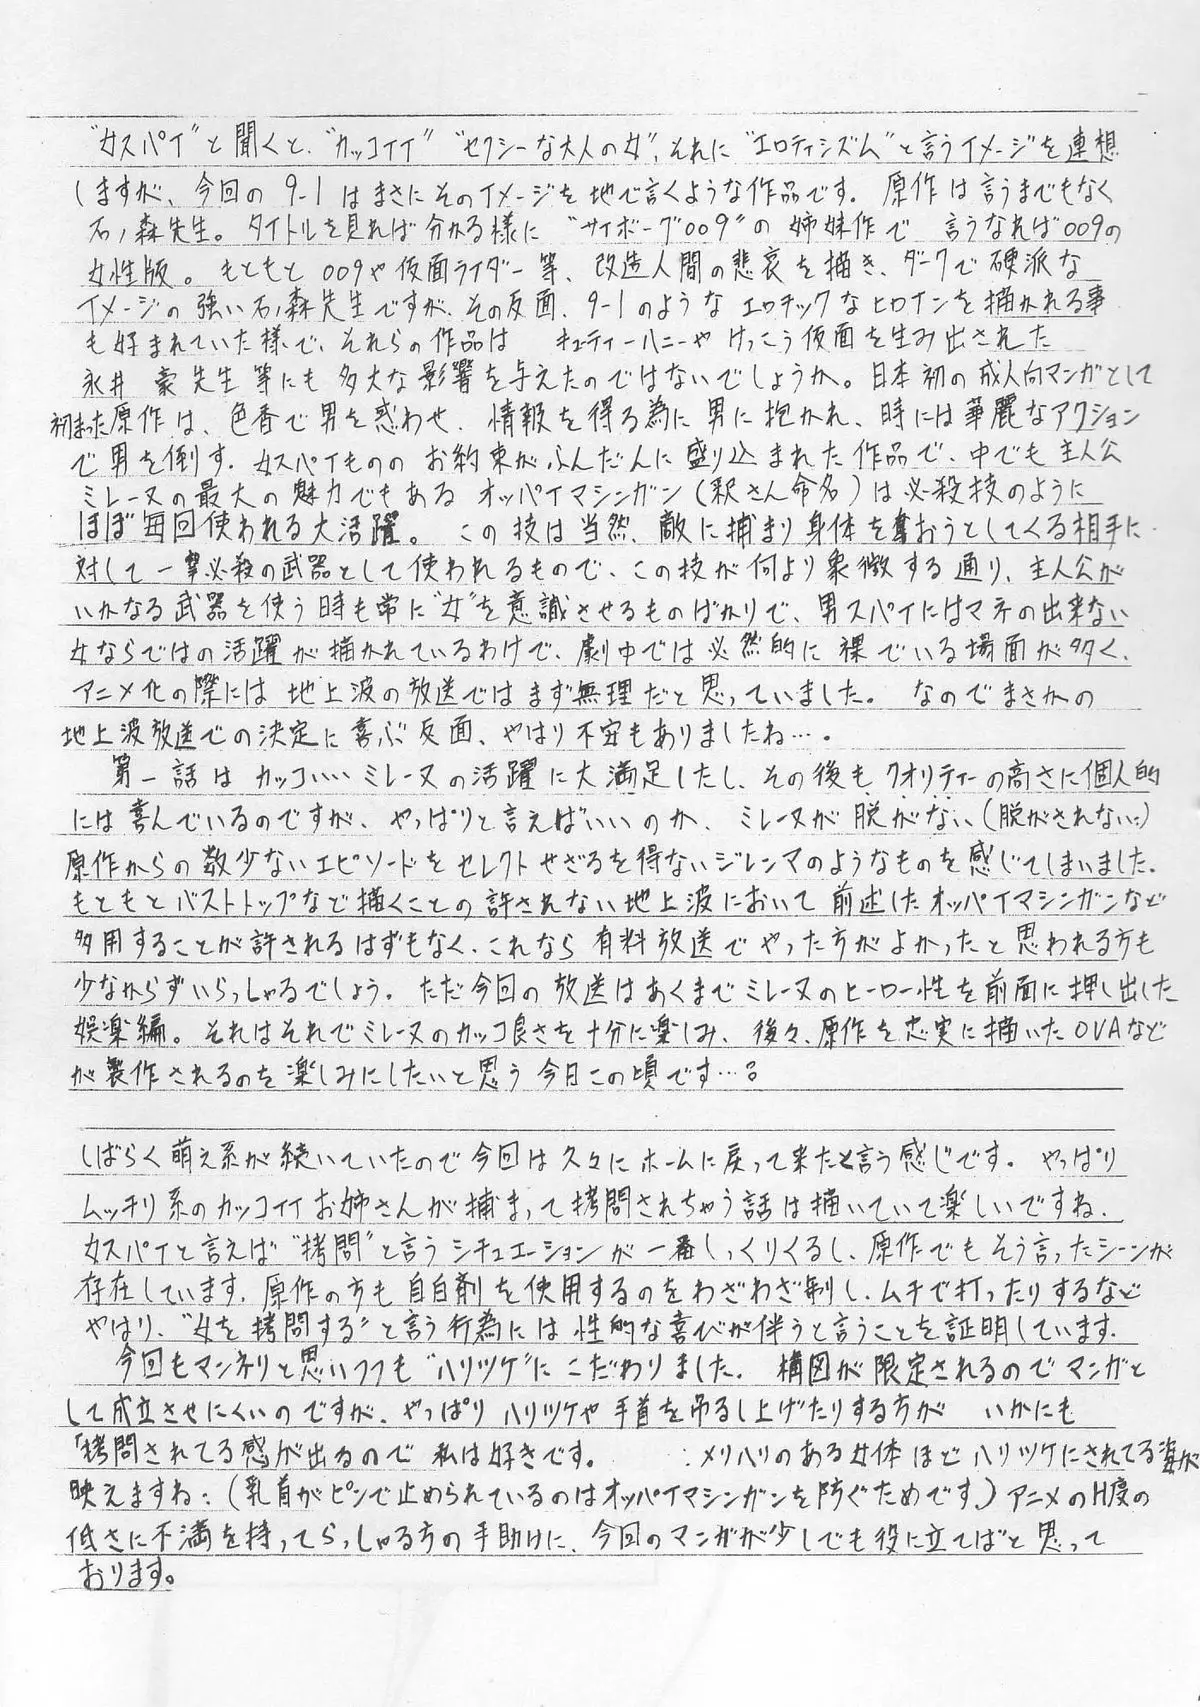 "女スパイ"と聞くと、"カッコイイ" "セクシーな大人の女"、それに"エロティシズム"と言うイメージを連想
しますが、今回の 9-1 はまさにそのイメージを地で言くような作品です。原作は言うまでもなく
石ノ森先生。タイトルを見れば分かる様に "サイボーグ009"の姉妹作で 言うなれば009の
女性版。もともと 009や仮面ライダー等、改造人間の悲哀を描き、ダークで硬派な
イメージの強い石ノ森先生ですが、その反面、9-1のような エロチックなヒロインを描かれる事
も好まれていた様で、それらの作品は キューティーハニーや けっこう仮面を生み出された
永井 豪先生等にも多大な影響を与えたのではないでしょうか。日本初の成人向マンガとして
初まった原作は、色香で男を惑わせ、情報を得る為に男に抱かれ、時には華麗なアクション
で男を倒す、女スパイものの お約束がふんだんに盛り込まれた作品で、中でも主人公
ミレーヌの最大の魅力でもある オッパイマシンガン(釈さん命名)は必殺技のように
ほぼ毎回使われる大活躍。 この技は当然、敵に捕まり身体を奪おうとしてくる相手に
対して一撃必殺の武器として使われるもので、この技が何より象徴する通り、主人公が
いかなる武器を使う時も常に"女"を意識させるものばかりで、男スパイにはマネの出来ない
女ならではの活躍が描かれているわけで、劇中では必然的に裸でいる場面が多く、
アニメ化の際には地上波の放送ではまず無理だと思っていました。 なのでまさかの
地上波放送での決定に喜ぶ反面、やはり不安もありましたね…。
第一話は カッコいい ミレーヌの活躍に大満足したし、その後もクオリティーの高さに個人的
には喜んでいるのですが、やっぱりと言えばいいのか、ミレーヌが脱がない(脱がされない)
原作からの数少ないエピソードをセレクトせざるを得ないジレンマのようなものを感じてしまいました。
もともとバストトップなど描くことの許されない地上波において前述したオッパイマシンガンなど
多用することが許されるはずもなく、これなら有料放送でやった方がよかったと思われる方も
少なからずいらっしゃるでしょう。ただ今回の放送はあくまでミレーヌのヒーロー性を前面に押し出した
娯楽編。それはそれでミレーヌのカッコ良さを十分に楽しみ、後々、原作を忠実に描いたOVAなど
が製作されるのを楽しみにしたいと思う今日この頃です…。
しばらく萌え系が続いていたので今回は久々にホームに戻って来たと言う感じです。やっぱり
ムッチリ系のカッコイイお姉さんが捕まって拷問されちゃう話は描いていて楽しいですね。
女スパイと言えば"拷問"と言うシチュエーションが一番しっくりくるし、原作でもそう言ったシーンが
存在しています。原作の方も自白剤を使用するのをわざわざ制し、ムチで打ったりするなど
やはり、"女を拷問する"と言う行為には性的な喜びが伴うと言うことを証明しています。
今回もマンネリと思いつつも"ハリツケ"にこだわりました。構図が限定されるのでマンガと
して成立させにくいのですが、やっぱりハリツケや手首を吊るし上げたりする方が いかにも
「拷問されてる感が出るので私は好きです。 メリハリのある女体ほどハリツケにされてる姿が
映えますね(乳首がピンで止められているのはオッパイマシンガンを防ぐためです)アニメのH度の
低さに不満を持ってらっしゃる方の手助けに、今回のマンガが少しでも役に立てばと思って
おります。